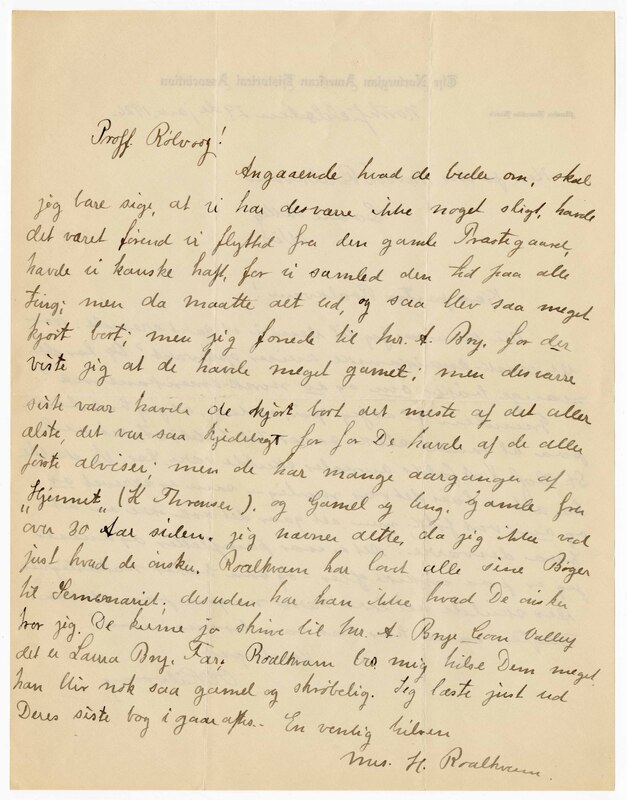 Proff. Rølvoog!
Angaaende hvad de beder om, skal
jeg bare sige, at vi har desværre ikke noget sligt, havde
det været førend vi flyttd fra den gamle Præstegaard,
havde vi kanske haft, for vi samled den tid paa alle
ting; men da maatte alt ud, og saa blev saa meget
kjørt bort; men jeg fonede til hr. A. Bry. for der
viste jeg at de havde meget gamet; men desværre
siste vaar havde de kjørt bort det meste af det aller
ælste, det var saa kjedeligt for for De havde af de alle
første alviser; men de har mange aargange af
"Hjemmet" (K Thronsen). og Gamel og Ung. Gamle fra
over 30 Aar siden. jeg nævner dette, da jeg ikke ved
just hvad de ønsker. Roalkvam har lovt alle sine Bøger
til Semenariet, desuden har han ikke hvad De ønsker
tror jeg. De kunne jo skrive til hr. A. Brye Coon Valley
det er Laura Bry. Far, Roalkvam bad mig hilse Dem meget
han blir nok saa gamel og skrøbelig. Jeg læste just ud
Deres siste bog i gaar aftes. - En venlig hilsen
Mrs. H. Roalkvam.
The Norwegian American Historical Association